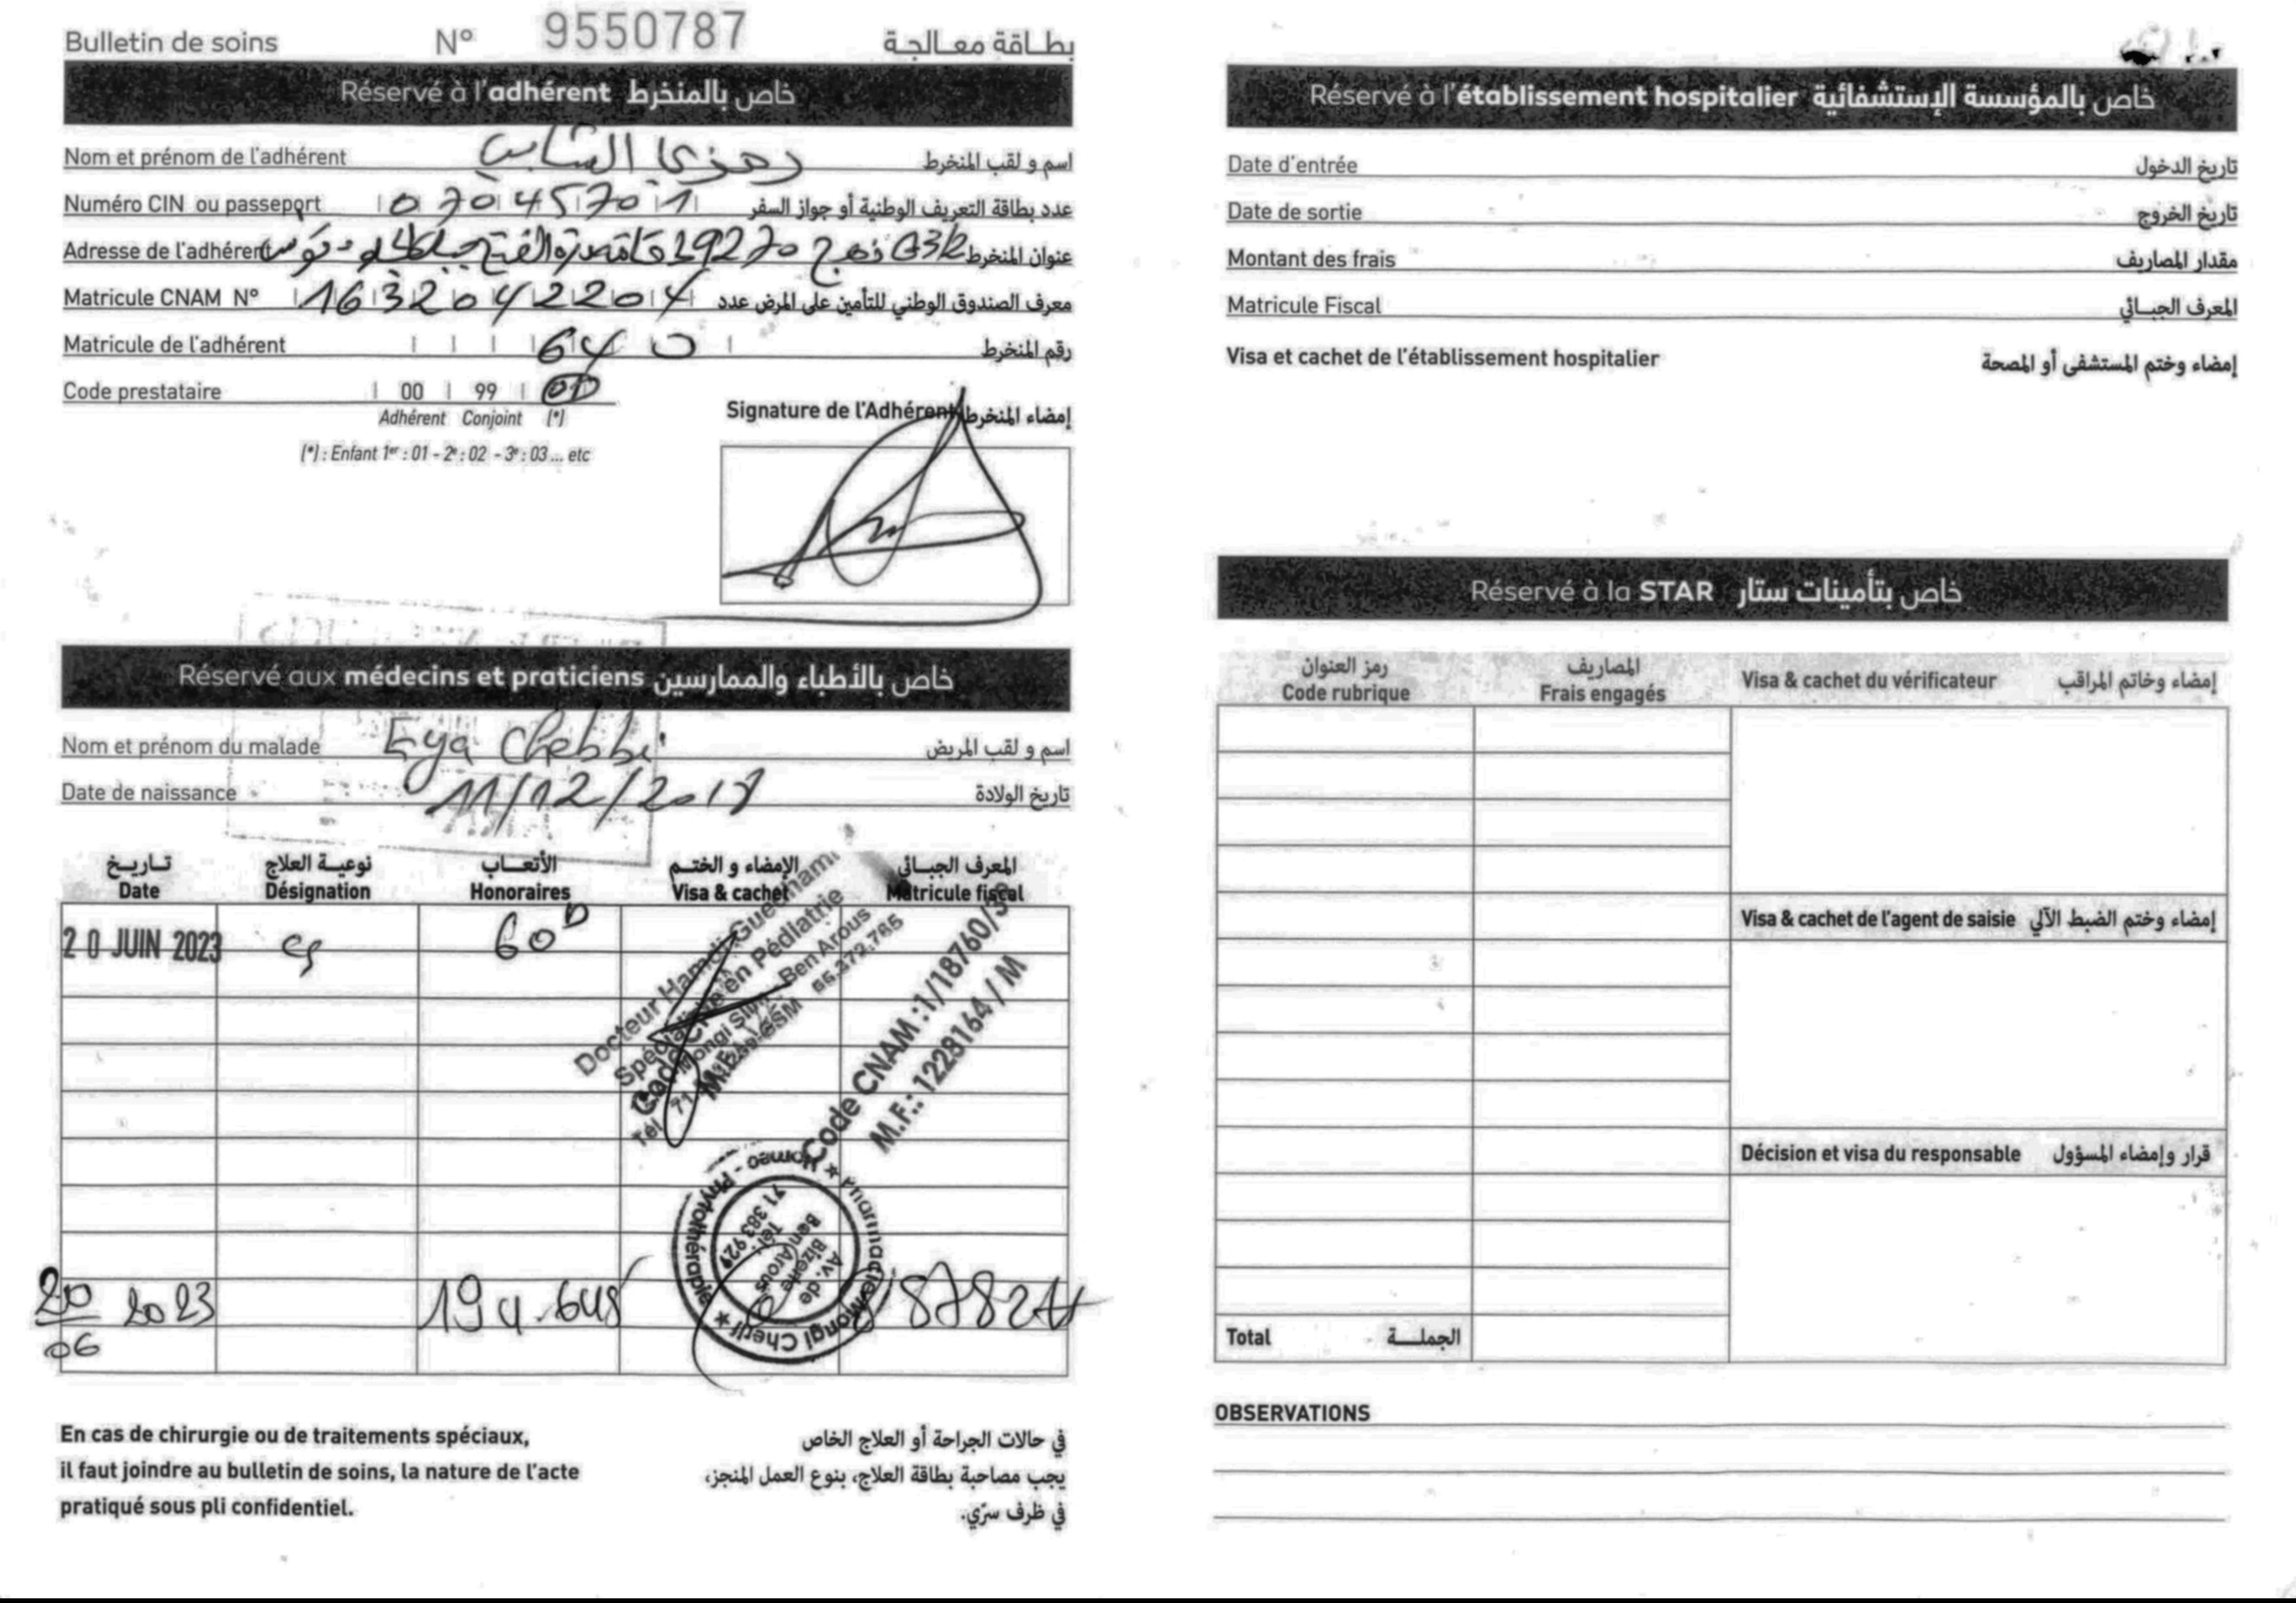 Bulletin de soins N° 9550787 بطاقة معالجة
Réservé à l'adhérent خاص بالمنخرط
Nom et prénom de l'adhérent رمزي الشابي اسم و لقب المنخرط
Numéro CIN ou passeport 07045701 عدد بطاقة التعريف الوطنية أو جواز السفر
Adresse de l'adhérent نهج 19270 عنوان المنخرط
Matricule CNAM N° 1632042204 معرف الصندوق الوطني للتأمين على المرض عدد
Matricule de l'adhérent 640 رقم المنخرط
Code prestataire 00 99 01
Adhérent Conjoint (*)
(*) : Enfant 1er : 01 - 2e : 02 - 3e : 03 ... etc
Signature de l'Adhérent إمضاء المنخرط
Réservé aux médecins et praticiens خاص بالأطباء والممارسين
Nom et prénom du malade Eya Chebbi اسم و لقب المريض
Date de naissance 11/12/2018 تاريخ الولادة
تاريخ نوعية العلاج الأتعاب الإمضاء و الختم المعرف الجبائي
Date Désignation Honoraires Visa & cachet Matricule fiscal
20 JUIN 2023 cs 60D
Docteur Hamdi Guesmami
Spécialiste en Pédiatrie
Mongi Slim - Ben Arous
Tél 71 GSM
Code CNAM : 1/18760/
M.F.: 1228164 / M
Pharmacie Mongi Cherif ★ Phytothérapie - Homéo ★
Av. de
Bizerte
Ben Arous
Tél :
71 383 929
20/06 2023 194.648 87824
En cas de chirurgie ou de traitements spéciaux,
il faut joindre au bulletin de soins, la nature de l'acte
pratiqué sous pli confidentiel.
في حالات الجراحة أو العلاج الخاص
يجب مصاحبة بطاقة العلاج، بنوع العمل المنجز،
في ظرف سرّي.
Réservé à l'établissement hospitalier خاص بالمؤسسة الإستشفائية
Date d'entrée تاريخ الدخول
Date de sortie تاريخ الخروج
Montant des frais مقدار المصاريف
Matricule Fiscal المعرف الجبائي
Visa et cachet de l'établissement hospitalier إمضاء وختم المستشفى أو المصحة
Réservé à la STAR خاص بتأمينات ستار
رمز العنوان المصاريف
Code rubrique Frais engagés Visa & cachet du vérificateur إمضاء وخاتم المراقب
Visa & cachet de l'agent de saisie إمضاء وختم الضبط الآلي
Décision et visa du responsable قرار وإمضاء المسؤول
Total الجملة
OBSERVATIONS